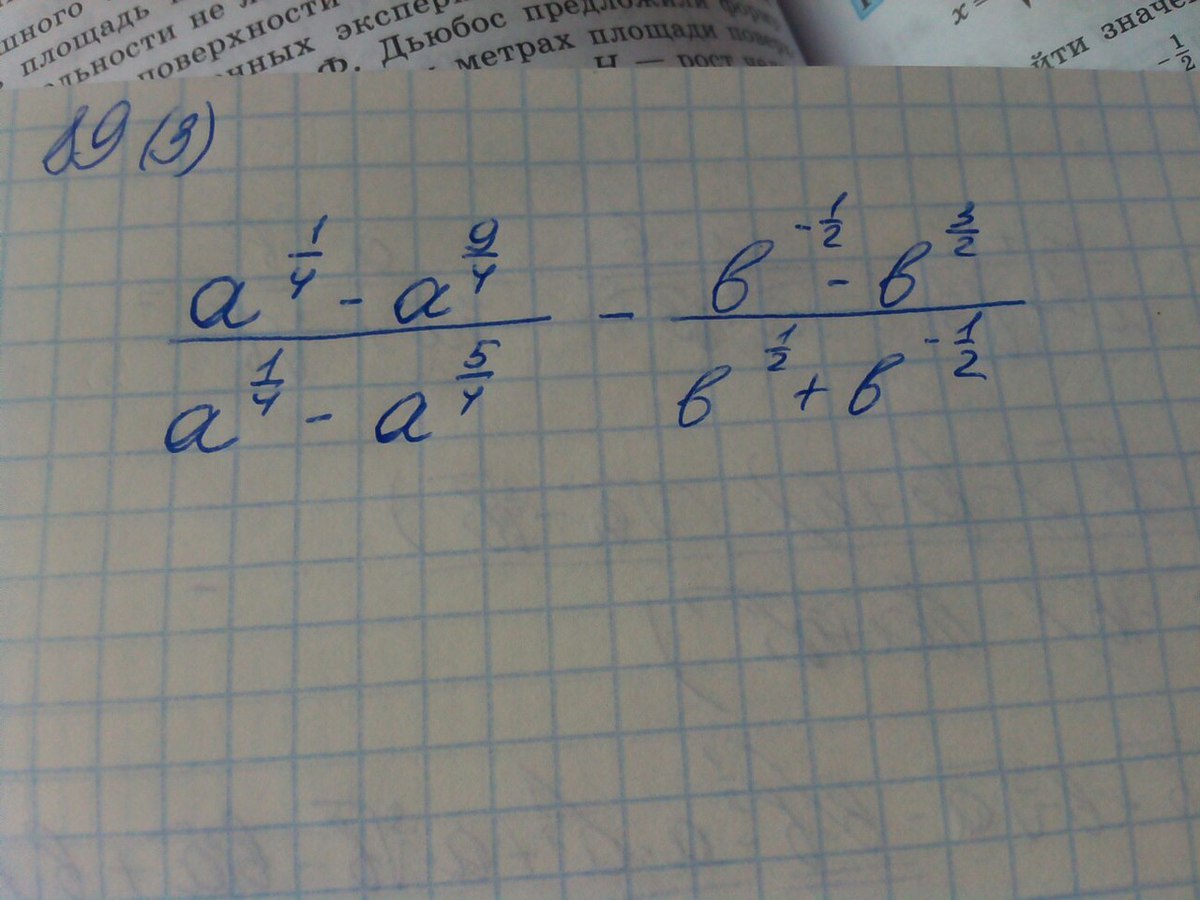 шного
площадь
льности не
поверхности
нных экспер
Ф. Дьюбос предложили форму
метрах площади повер
H — рост
x =
йти значе
-1/2
89 (3)
(a^(1/4) - a^(9/4))/(a^(1/4) - a^(5/4)) - (в^(-1/2) - в^(3/2))/(в^(1/2) + в^(-1/2))